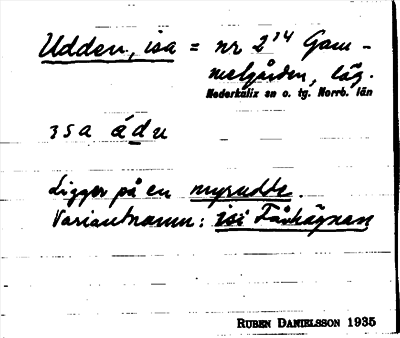 Udden, isa = nr 2¹⁴ Gam-
melgården, läg.
Nederkalix sn o. tg. Norrb. län
ɜsa ádu
Ligger på en myrudde.
Variantnamn: isi Fårhägnan
RUBEN DANIELSSON 1935